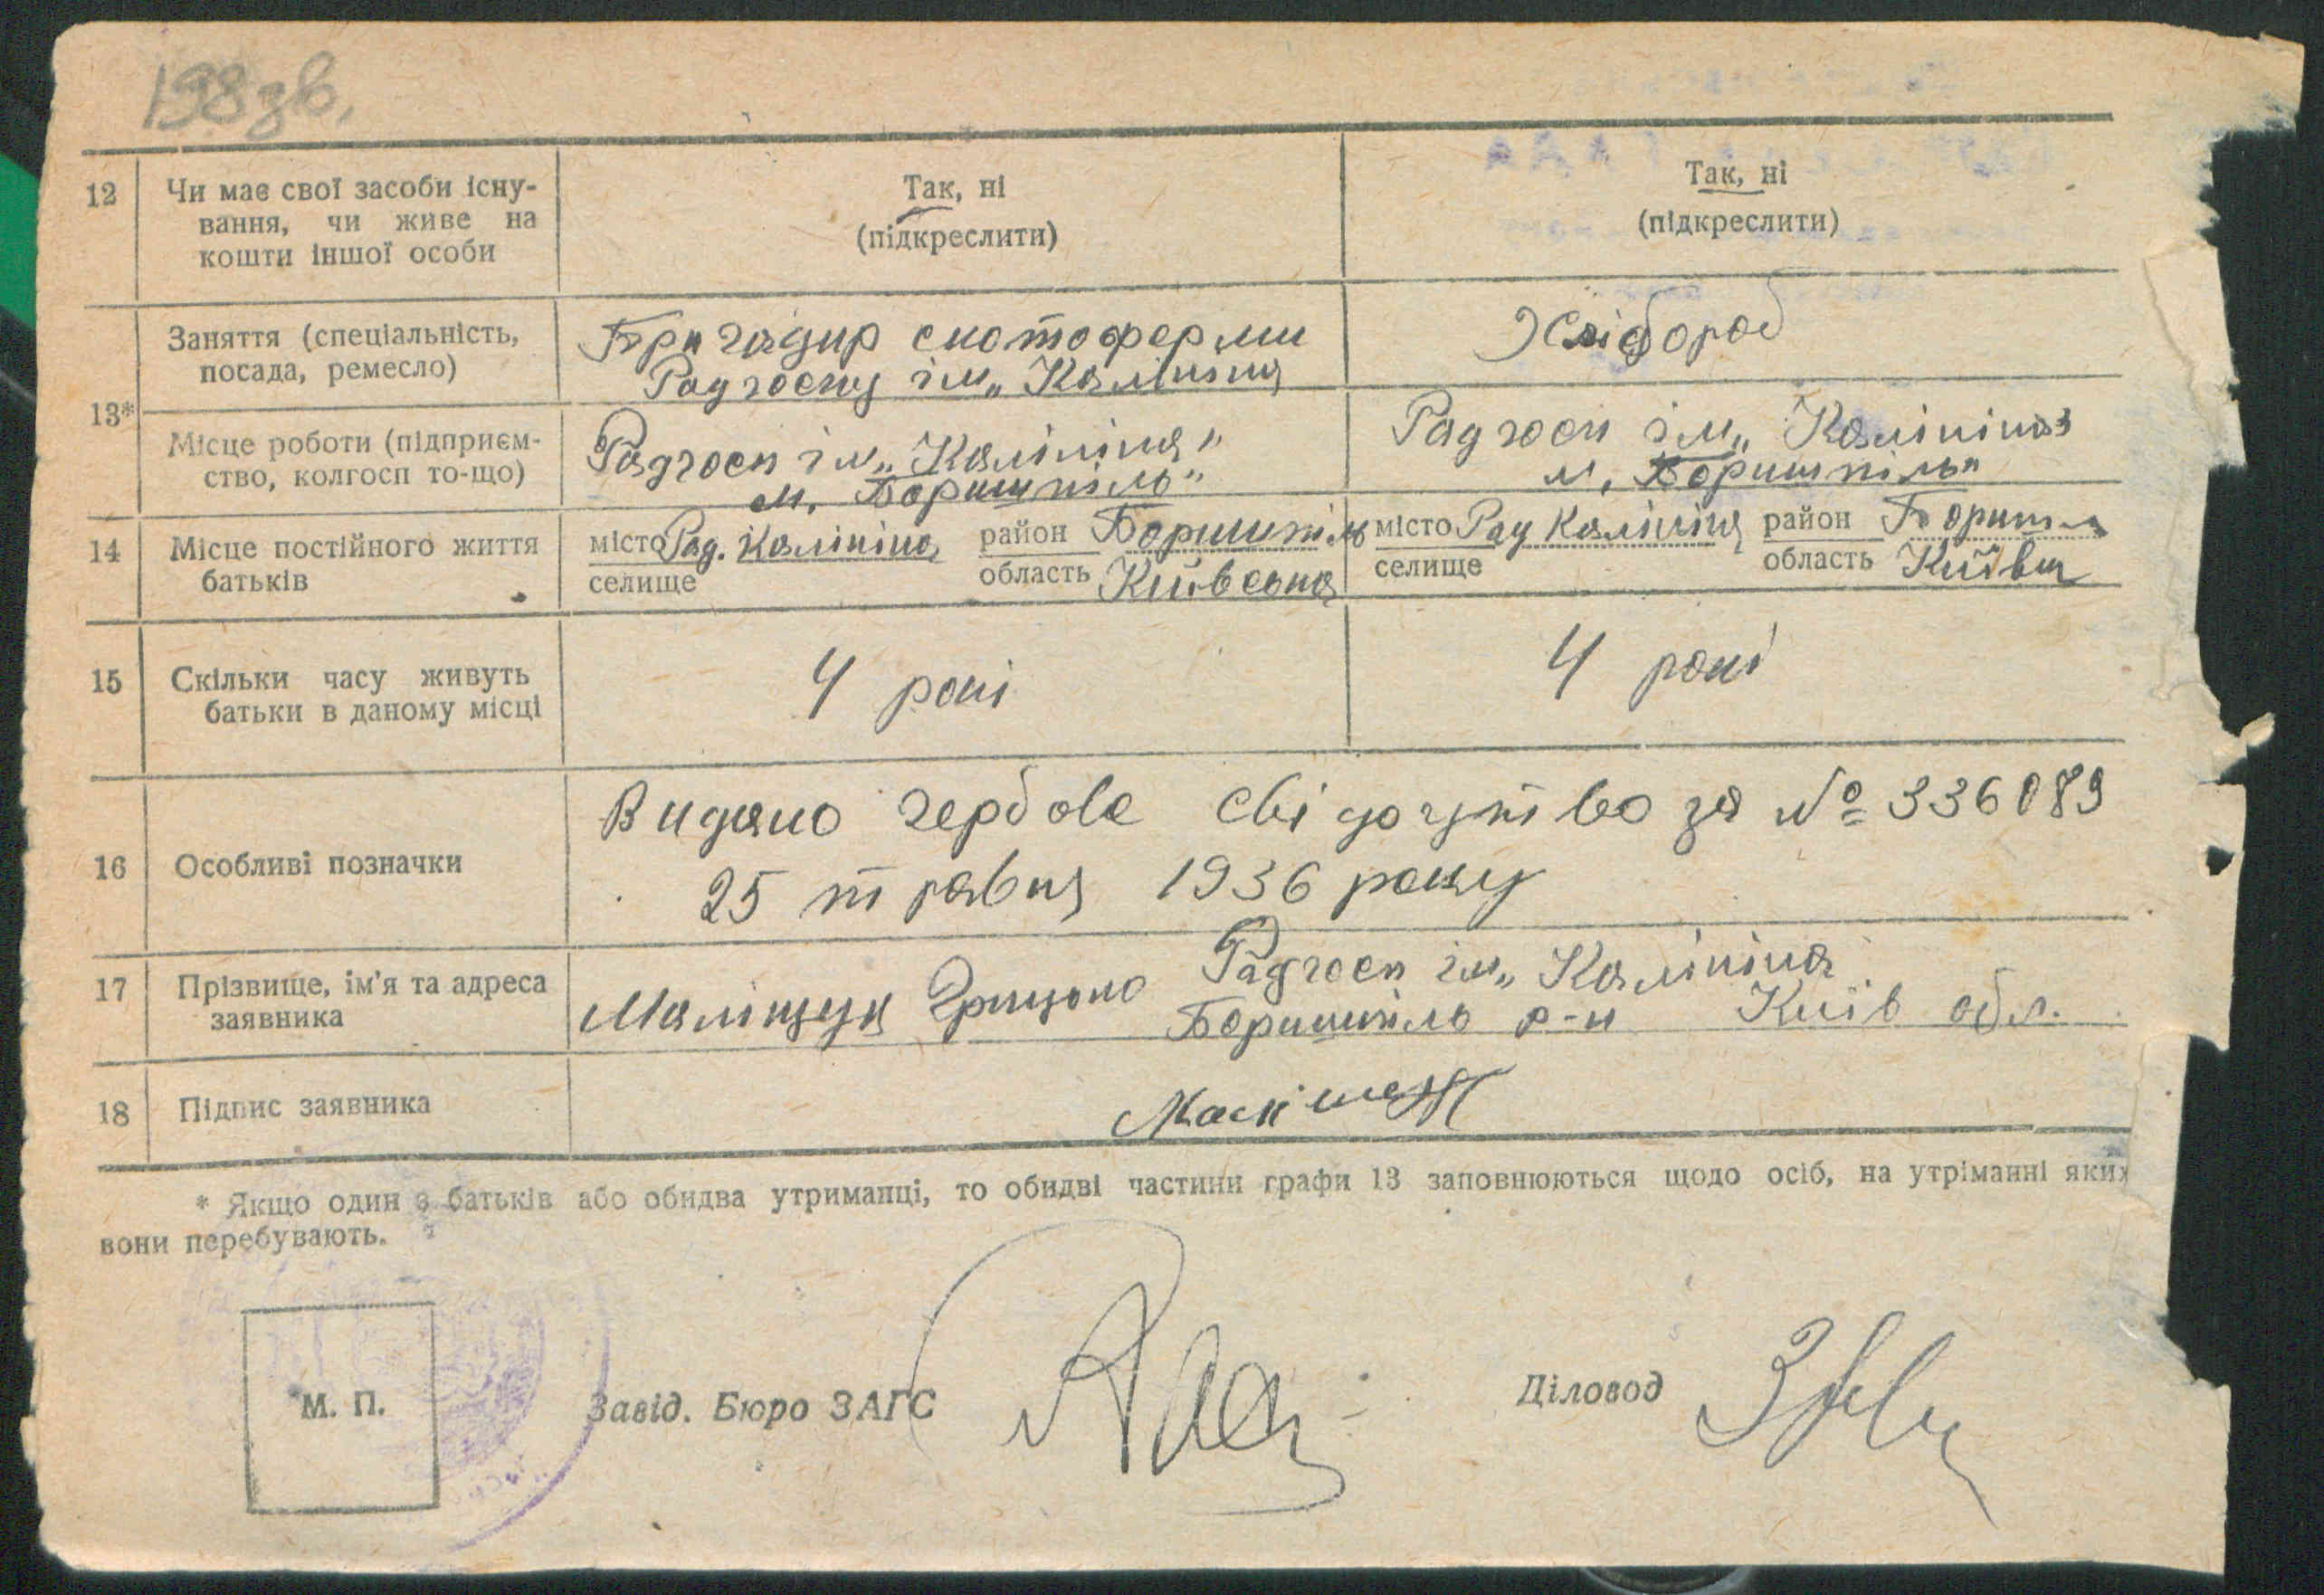 198 зв.
12
Чи має свої засоби існу-
вання, чи живе на
кошти іншої особи
Так, ні
(підкреслити)
Так, ні
(підкреслити)
13*
Заняття (спеціальність,
посада, ремесло)
Бригадир скотоферми
Радгоспу ім„ Калініна
Хлібороб
Місце роботи (підприєм-
ство, колгосп то-що)
Радгосп ім„ Калініна"
м, Боришпіль"
Радгосп ім„ Калініна
м, Боришпіль"
14
Місце постійного життя
батьків
місто Рад. Калініна район Боришпіль
селище область Київська
місто Рад Калініна район Боришпл
селище область Київщ
15
Скільки часу живуть
батьки в даному місці
4 рокі
4 рокі
16
Особливі позначки
Видано гербове свідоцтво за № 336089
25 травня 1936 року
17
Прізвище, ім'я та адреса
заявника
Маліщук Грицько Радгосп ім„ Калініна
Боришпіль р-н Київ обл.
18
Підпис заявника
* Якщо один з батьків або обидва утриманці, то обидві частини графи 13 заповнюються щодо осіб, на утріманні яких
вони перебувають.
М. П.
Завід. Бюро ЗАГС
Діловод